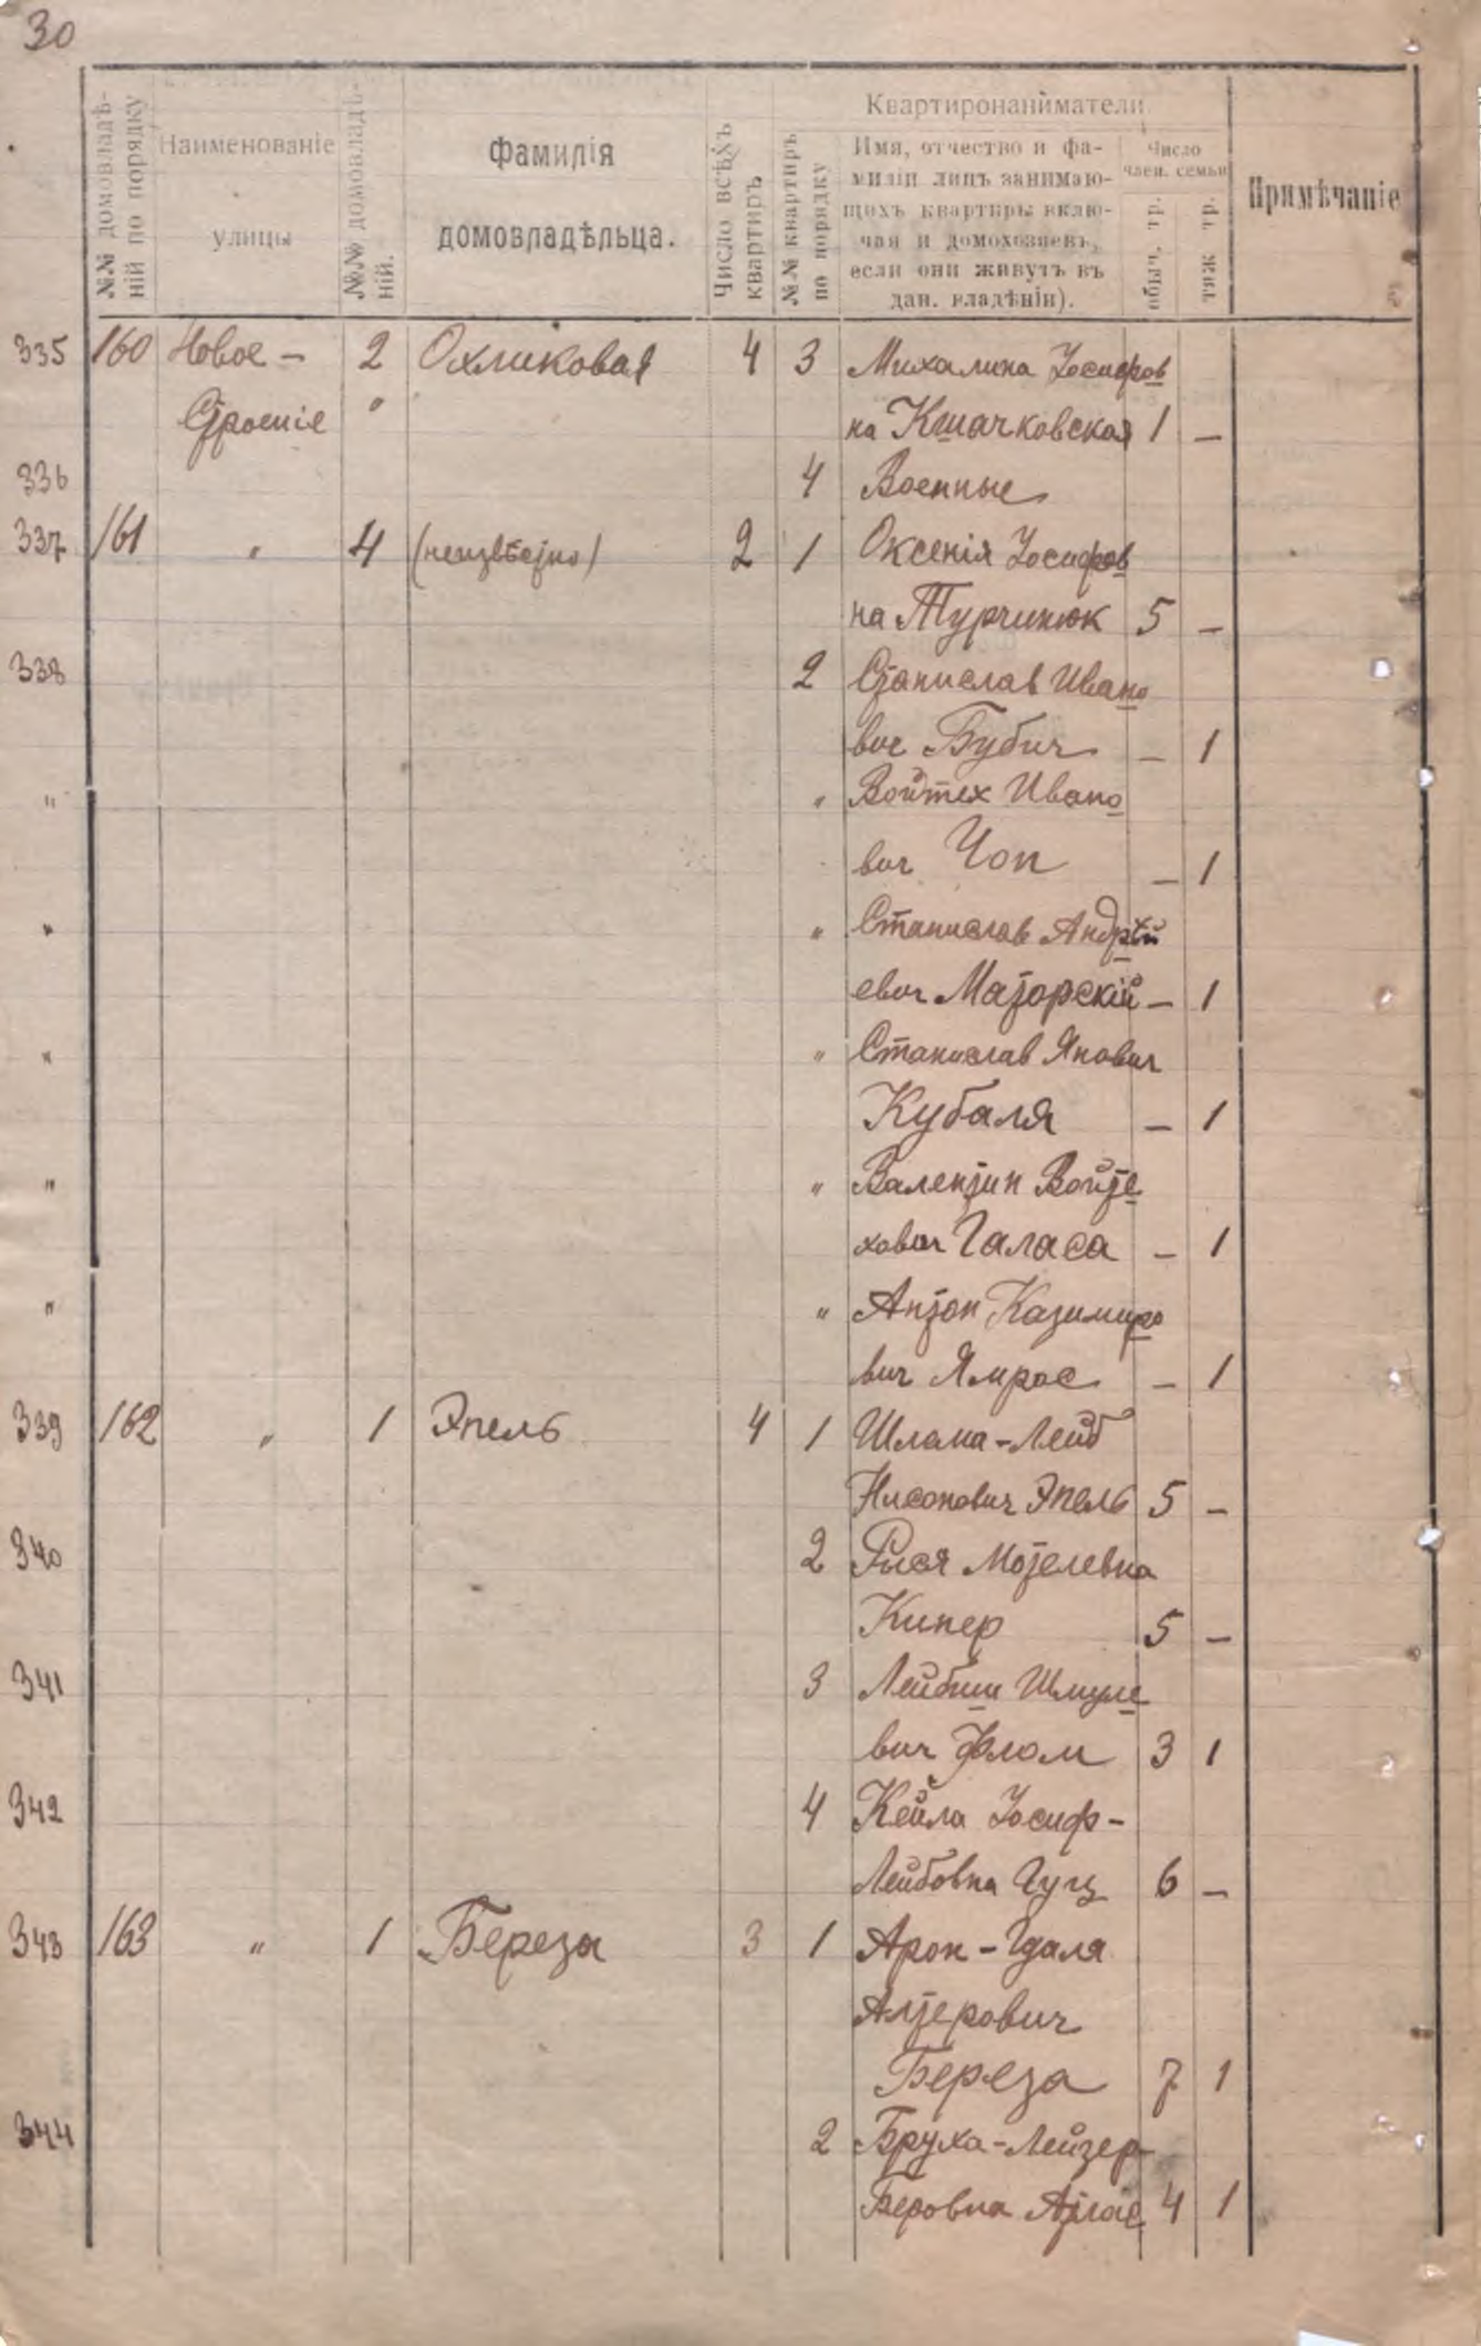 30
№№ домовладѣ-
ній по порядку
Наименованіе
улицы
№№ домовладѣ-
ній.
Фамилія
домовладѣльца.
Число всѣхъ
квартиръ
№№ квартиръ
по порядку
Квартиронаниматели
Имя, отчество и фа-
миліи лицъ занимаю-
щихъ квартиры вклю-
чая и домохозяевъ,
если они живутъ въ
дан. владѣніи).
Число
член. семьи
обыч. тр.
тяж тр.
Примѣчаніе
335 160 Новое - 2 Охликовая 4 3 Михалина Іосифов
Строеніе " на Кшачковская 1 —
336 4 Военные
337 161 " 4 (неизвѣстно) 2 1 Оксенія Іосифов
на Турчинюк 5 —
338 2 Станислав Ивано
вис Бубич — 1
" " Войтех Ивано
вич Чоп — 1
" " Станислав Андрѣй
евич Маторскій — 1
" " Станислав Янович
Кубаля — 1
" " Валентин Войте
хович Галаса — 1
" " Антон Казимиро
вич Ямрос — 1
339 162 " 1 Эпель 4 1 Шлема-Лейб
Нисонович Эпель 5 —
340 2 Рися Мотелевна
Кипер 5 —
341 3 Лейбиш Шмуле
вич Флом 3 1
342 4 Кейла Іосиф-
Лейбовна Гуц 6 —
343 163 " 1 Береза 3 1 Арон-Гдаля
Алтерович
Береза 7 1
344 2 Бруха-Лейзер-
Беровна Атлас 4 1